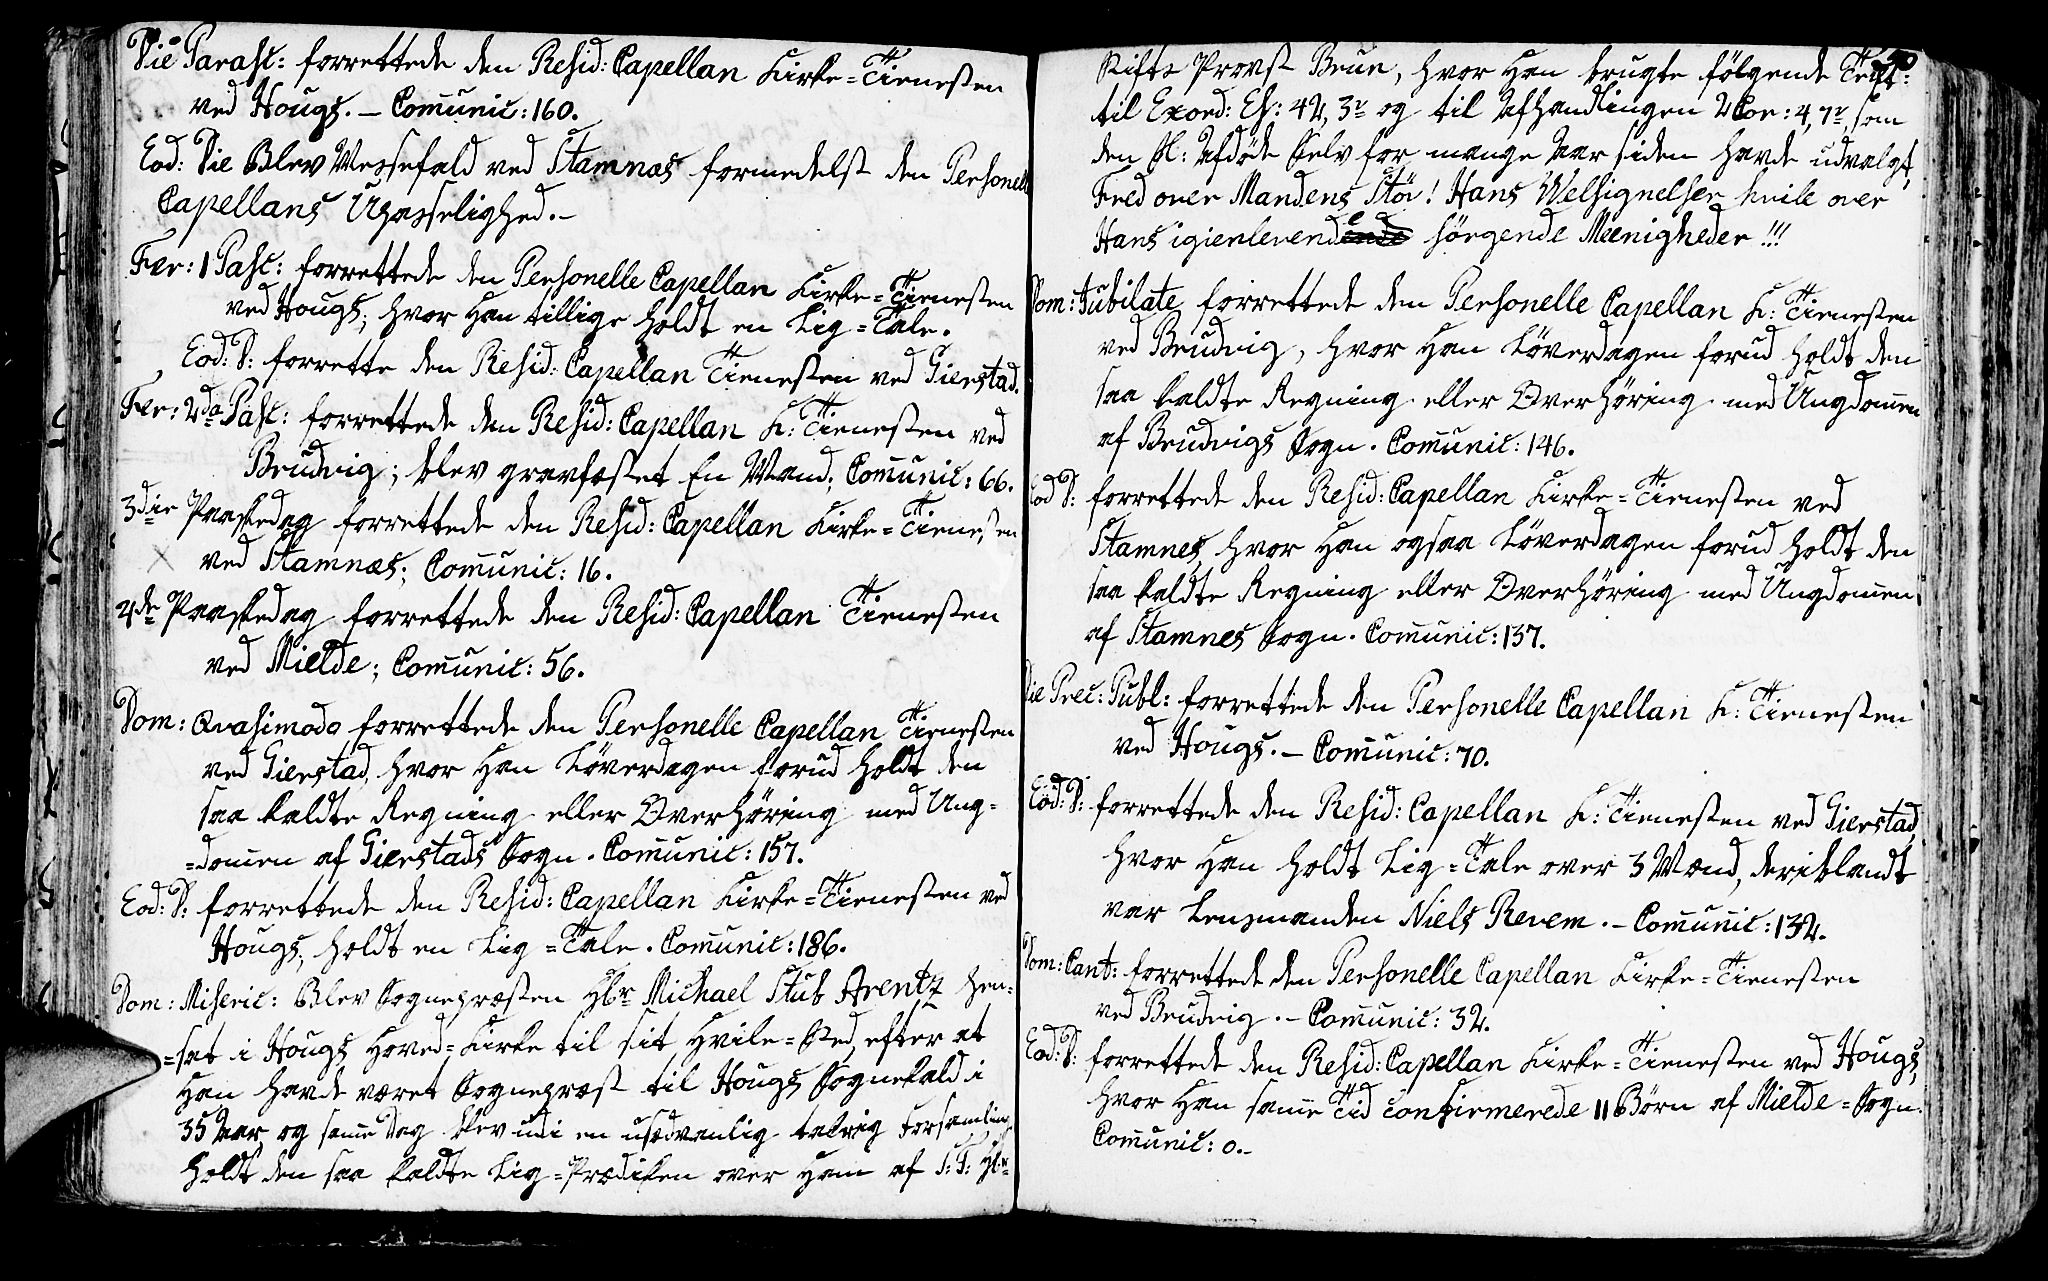 Die Parasc: forrettede den Resid: Capellan Kirke=Tienesten
ved Hougs. – Com̄unic: 160.
Eod: Die Blev Messefald ved Stamnæs formedelst den Personell
Capellans Upasselighed. –
Fer: 1 Pasc: forrettede den Personelle Capellan Kirke=Tienesten
ved Hougs, hvor Han tillige holdt en Lig=Tale.
Eod: D: forrette den Resid: Capellan Tienesten ved Gierstad.
Fer: 2da Pasc: forrettede den Resid: Capellan K: Tienesten ved
Brudvig; blev gravfæstet En Mand; Com̄unic: 66.
3die Paaskedag forrettede den Resid: Capellan Kirke=Tienesten
ved Stamnæs; Com̄unic: 16.
4de Paaskedag forrettede den Resid: Capellan Tienesten
ved Mielde; Com̄unic: 56.
Dom: Qvasimodo forrettede den Personelle Capellan Tienesten
ved Gierstad, hvor Han Løverdagen forud holdt den
saa kaldte Regning eller Overhøring med Ung=
=dom̄en af Gierstads Sogn. Com̄unic: 157.
Eod: D: forrettede den Resid: Capellan Kirke=Tienesten ved
Hougs, holdt en Lig=Tale. Com̄unic: 186.
Dom: Miseric: Blev Sognepræsten Hr Michael Stub Arentz hen=
=sat i Hougs Hoved=Kirke til sit Hvile=Sted, efter at
Han havde været Sognepræst til Hougs Sognekald i
35 Aar, og sam̄e Dag blev udi en usædvanlig talrig Forsamling
holdt den saa kaldte Lig=Prædiken over Ham af S: T: Hr
90
Stifts Provst Brun, hvor Han brugte følgende Text:
til Exord: Es: 42, 3v og til Afhandlingen 2 Cor: 4, 7v, som
den Sl: Afdøde Selv for mange Aar siden havde udvalgt,
Fred over Mandens Støv! Hans Welsignelser hvile over
Hans igienlevende sørgende Meenigheder!!!
Dom: Jubilate forrettede den Personelle Capellan K: Tienesten
ved Brudvig, hvor Han Løverdagen forud holdt den
saa kaldte Regning eller Overhøring med Ungdom̄en
af Brudvigs Sogn. Com̄unic: 146.
Eod D: forrettede den Resid: Capellan Kirke=Tienesten ved
Stamnes, hvor Han ogsaa Løverdagen forud holdt den
saa kaldte Regning eller Overhøring med Ungdom̄en
af Stamnes Sogn. Com̄unic: 137.
Die Prec: Publ: forrettede den Personelle Capellan K: Tienesten
ved Hougs. – Com̄unic: 70.
Eod: D: forrettede den Resid: Capellan K: Tienesten ved Gierstad,
hvor Han holdt Lig=Tale over 3 Mænd, deriblandt
var Lensmanden Niels Revem. – Com̄unic: 132.
Dom: Cant: forrettede den Personelle Capellan Kirke=Tienesten
ved Brudvig. – Com̄unic: 32.
Eod: D: forrettede den Resid: Capellan Kirke=Tienesten ved Hougs,
hvor Han sam̄e Tid confirmerede 11 Børn af Mielde=Sogn.
Com̄unic: 0. –